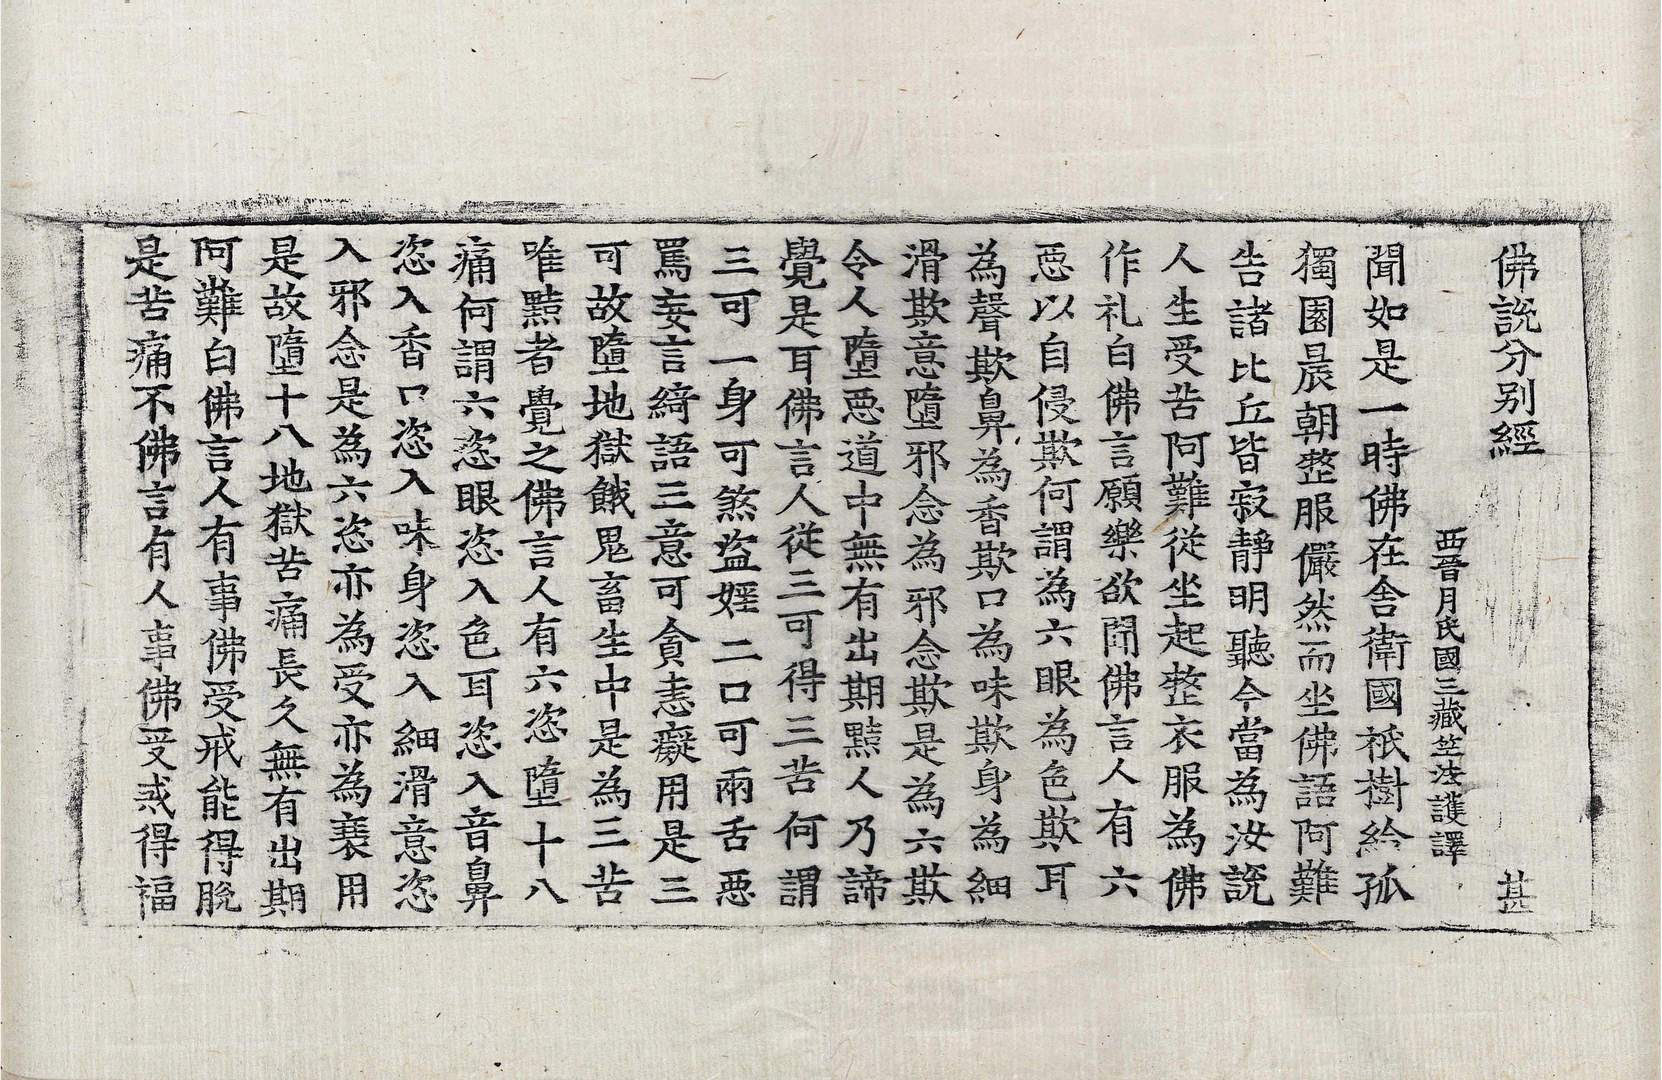 佛說分別經 甚
西晉月氏國三藏竺法護譯
聞如是一時佛在舍衛國祇樹給孤
獨園晨朝整服儼然而坐佛語阿難
告諸比丘皆寂靜明聽今當為汝說
人生受苦阿難從坐起整衣服為佛
作礼白佛言願樂欲聞佛言人有六
惡以自侵欺何謂為六眼為色欺耳
為聲欺鼻為香欺口為味欺身為細
滑欺意墮邪念為邪念欺是為六欺
令人墮惡道中無有出期黠人乃諦
覺是耳佛言人從三可得三苦何謂
三可一身可煞盜婬二口可兩舌惡
罵妄言綺語三意可貪恚癡用是三
可故墮地獄餓鬼畜生中是為三苦
唯黠者覺之佛言人有六恣墮十八
痛何謂六恣眼恣入色耳恣入音鼻
恣入香口恣入味身恣入細滑意恣
入邪念是為六恣亦為受亦為衰用
是故墮十八地獄苦痛長久無有出期
阿難白佛言人有事佛受戒能得脫
是苦痛不佛言有人事佛受戒得福